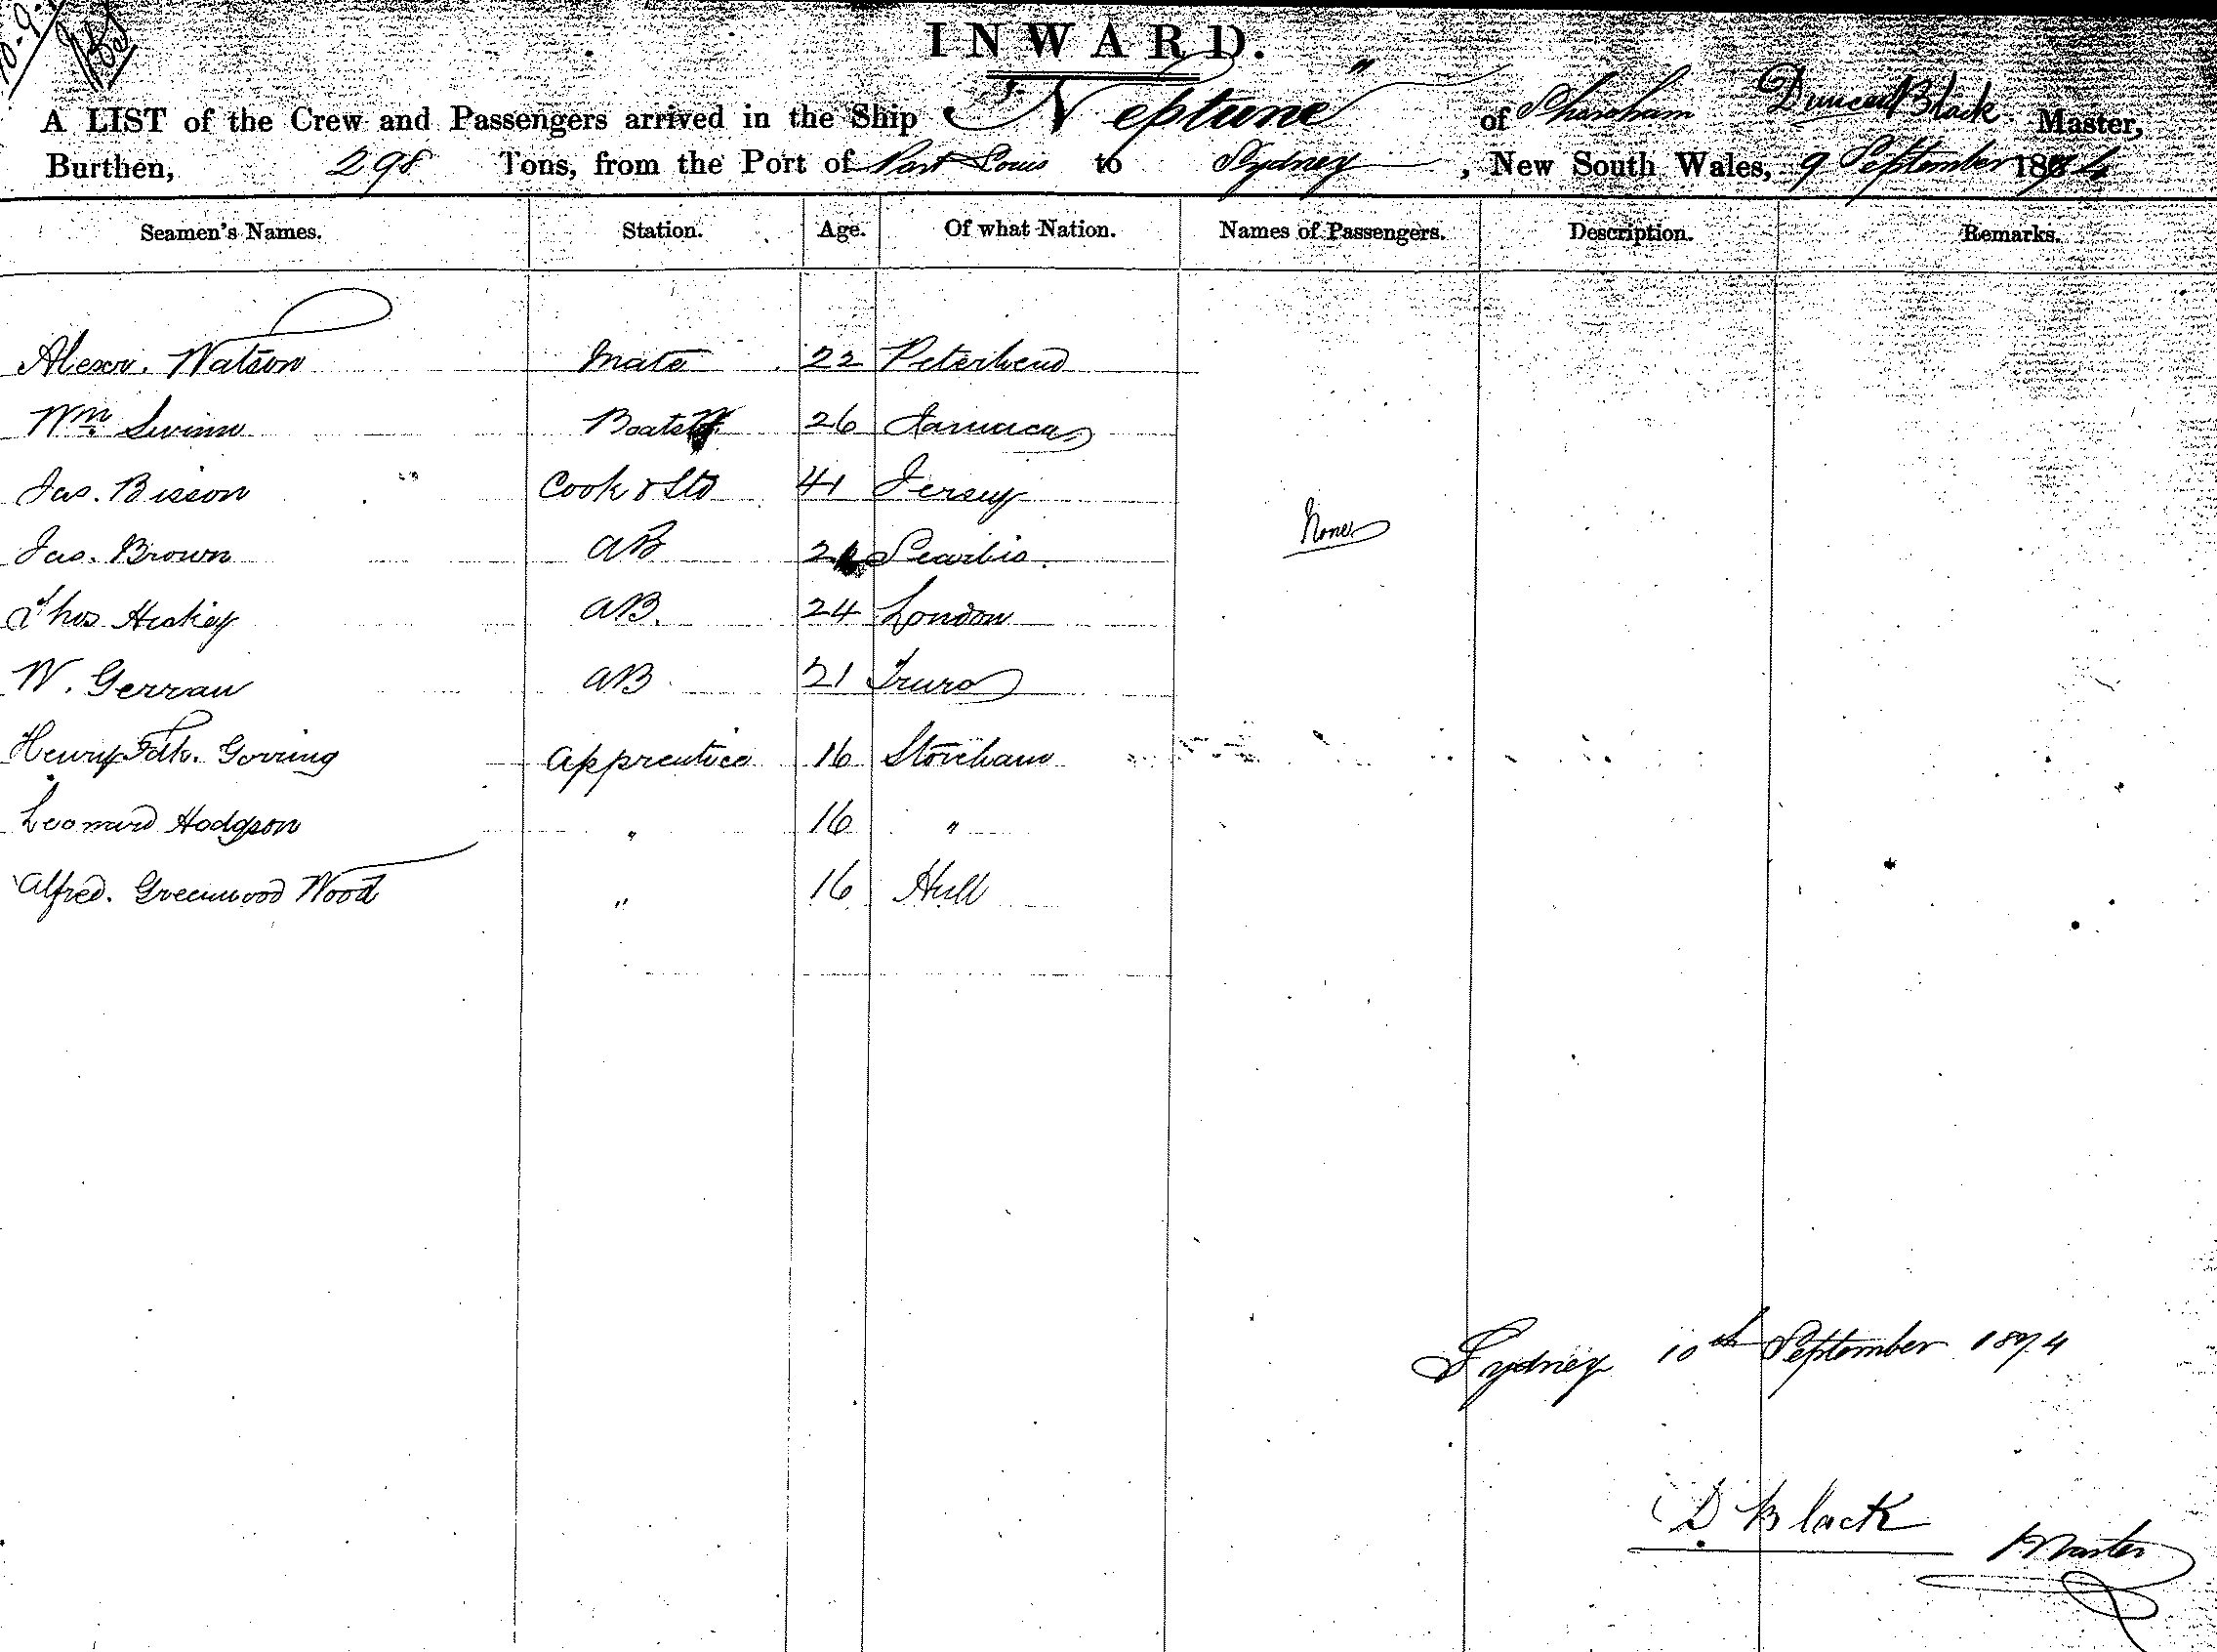 INWARD.
A LIST of the Crew and Passengers arrived in the Ship "Neptune" of Shoreham Duncan Black Master,
Burthen, 298 Tons, from the Port of Port Louis to Sydney, New South Wales, 9 September 1874
Seamen's Names. Station. Age. Of what Nation. Names of Passengers. Description. Remarks.
Alexr. Watson Mate 22 Peterhead
Wm Swinn Boatsn 26 Jamaica
Jas. Bisson Cook & Std 41 Jersey
None
Jas. Brown AB
Thos AB. 24 London
W. Gerran AB 21 Truro
Henry Fdk. Gorring Apprentice 16 Storeham
Leonard Hodgson " 16 "
Alfred. Greenwood Wood " 16 Hull
Sydney 10th September 1874
D Black Master